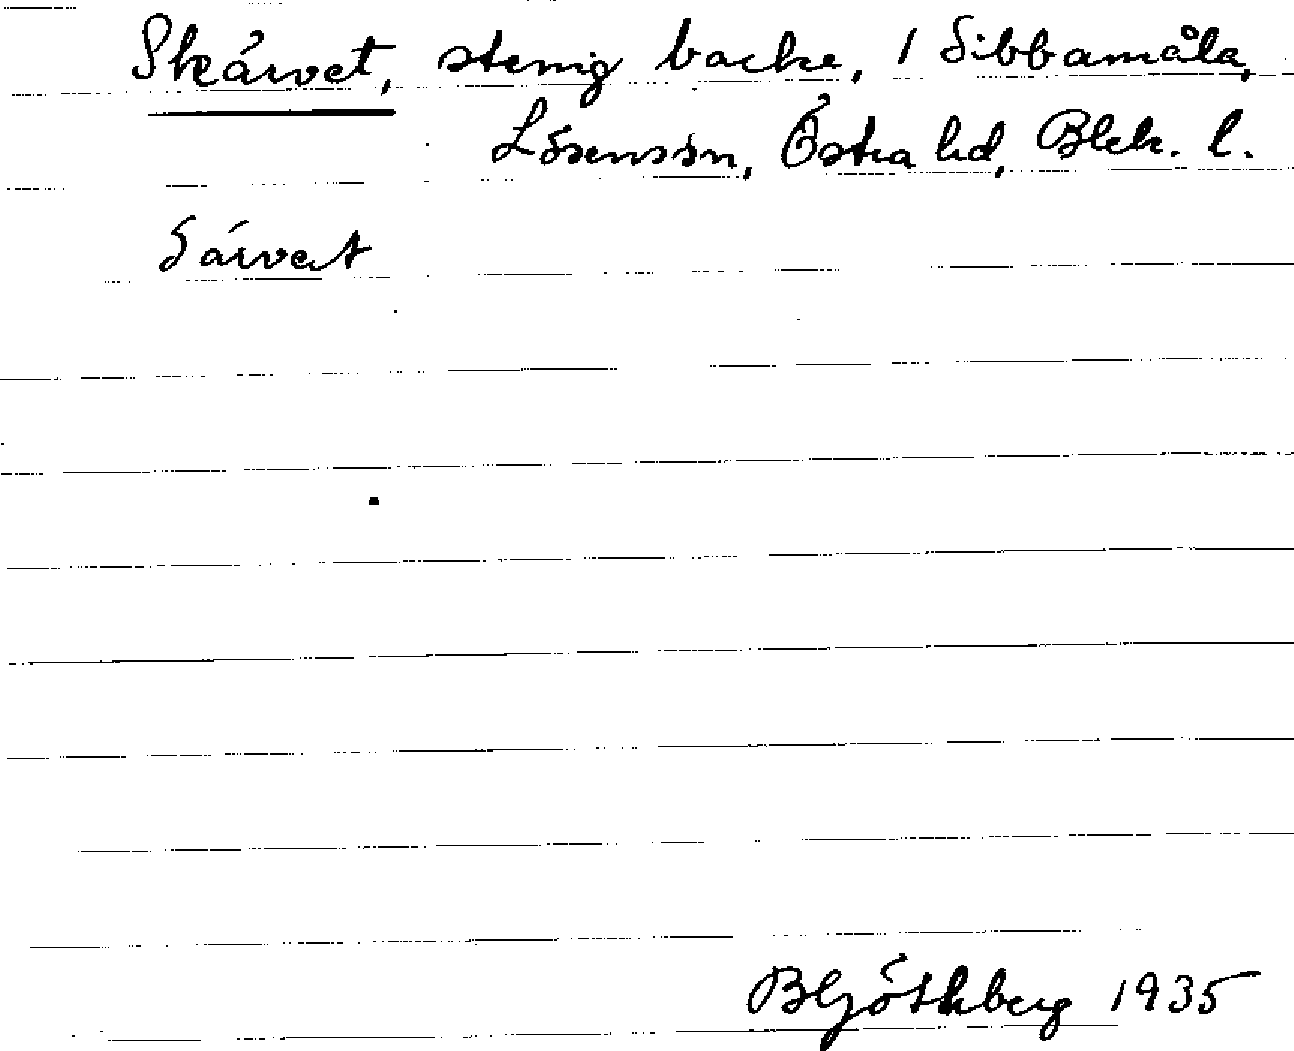 Skärvet, stenig backe, 1 Sibbamåla,
Lösenssn, Östra hd, Blek. l.
Särvet
Göthberg 1935